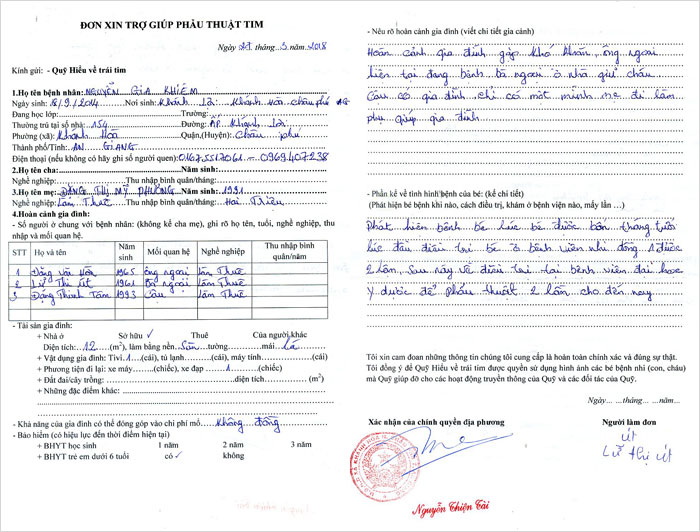 ĐƠN XIN TRỢ GIÚP PHẪU THUẬT TIM
Ngày 21.tháng..3.năm..2018
Kính gửi: - Quỹ Hiểu về trái tim
1.Họ tên bệnh nhân: NGUYỄN GIA KHIÊM
Ngày sinh: 18/9/2014 Nơi sinh: Khánh Hòa Châu phú AG
Đang học lớp: Trường:
Thường trú tại số nhà: 154 Đường: ẤP Khánh
Phường (xã): Khánh Hoà Quận,(Huyện): Châu phú
Thành phố/Tỉnh: AN GIANG
Điện thoại (nếu không có hãy ghi số người quen): 01675517061 - 0969407238
2.Họ tên cha: Năm sinh:
Nghề nghiệp: Thu nhập bình quân/tháng:
3.Họ tên mẹ: ĐẶNG THỊ MỸ PHƯƠNG Năm sinh: 1991
Nghề nghiệp: Làm Thuê Thu nhập bình quân/tháng: Hai Triệu
4.Hoàn cảnh gia đình:
- Số người ở chung với bệnh nhân: (không kể cha mẹ), ghi rõ họ tên, tuổi, nghề nghiệp, thu
nhập và mối quan hệ.
STT Họ và tên Năm sinh Mối quan hệ Nghề nghiệp Thu nhập bình quân/năm
1 Đặng Văn 1965 ông ngoại Làm Thuê
2 Lữ Thị Út 1961 Bà ngoại Làm Thuê
3 Đặng Thanh Tâm 1993 Cậu Làm Thuê
- Tài sản gia đình:
+ Nhà ở Sở hữu ✓ Thuê Của người khác
Diện tích: 12 (m²), làm bằng nền Sàn tường mái lá
+ Vật dụng gia đình: Tivi.1(cái), tủ lạnh(cái), máy tính(cái)
+ Phương tiện đi lại: xe máy(chiếc), xe đạp 1(chiếc)
+ Đất đai/cây trồng: diện tích (m²)
+ Những đặc điểm khác:
- Khả năng của gia đình có thể đóng góp vào chi phí mổ Không đồng
- Bảo hiểm (có hiệu lực đến thời điểm hiện tại)
+ BHYT học sinh 1 năm 2 năm 3 năm
+ BHYT trẻ em dưới 6 tuổi có ✓ không
- Nêu rõ hoàn cảnh gia đình (viết chi tiết gia cảnh)
Hoàn cảnh gia đình gặp khó khăn, ông ngoại
hiện tại đang bệnh bà ngoại ở nhà giữ cháu
Cậu có gia đình chỉ có một mình mẹ đi làm
phụ giúp gia đình
- Phần kể về tình hình bệnh của bé: (kể chi tiết)
(Phát hiện bệnh khi nào, cách điều trị, khám ở bệnh viện nào, mấy lần …)
Phát hiện bệnh bé lúc bé được bốn tháng tuổi
lúc đầu điều trị bé ở bệnh viện nhi đồng 1 được
2 lần, sau này về điều trị tại bệnh viện đại học
y dược để phẩu thuật 2 lần cho đến nay
Tôi xin cam đoan những thông tin chúng tôi cung cấp là hoàn toàn chính xác và đúng sự thật.
Tôi đồng ý để Quỹ Hiểu về trái tim được quyền sử dụng hình ảnh các bé bệnh nhi (con, cháu)
mà Quỹ giúp đỡ cho các hoạt động truyền thông của Quỹ và các đối tác của Quỹ.
Ngày… …tháng… …năm…
Xác nhận của chính quyền địa phương Người làm đơn
út
Lữ Thị Út
Nguyễn Thiện Tài